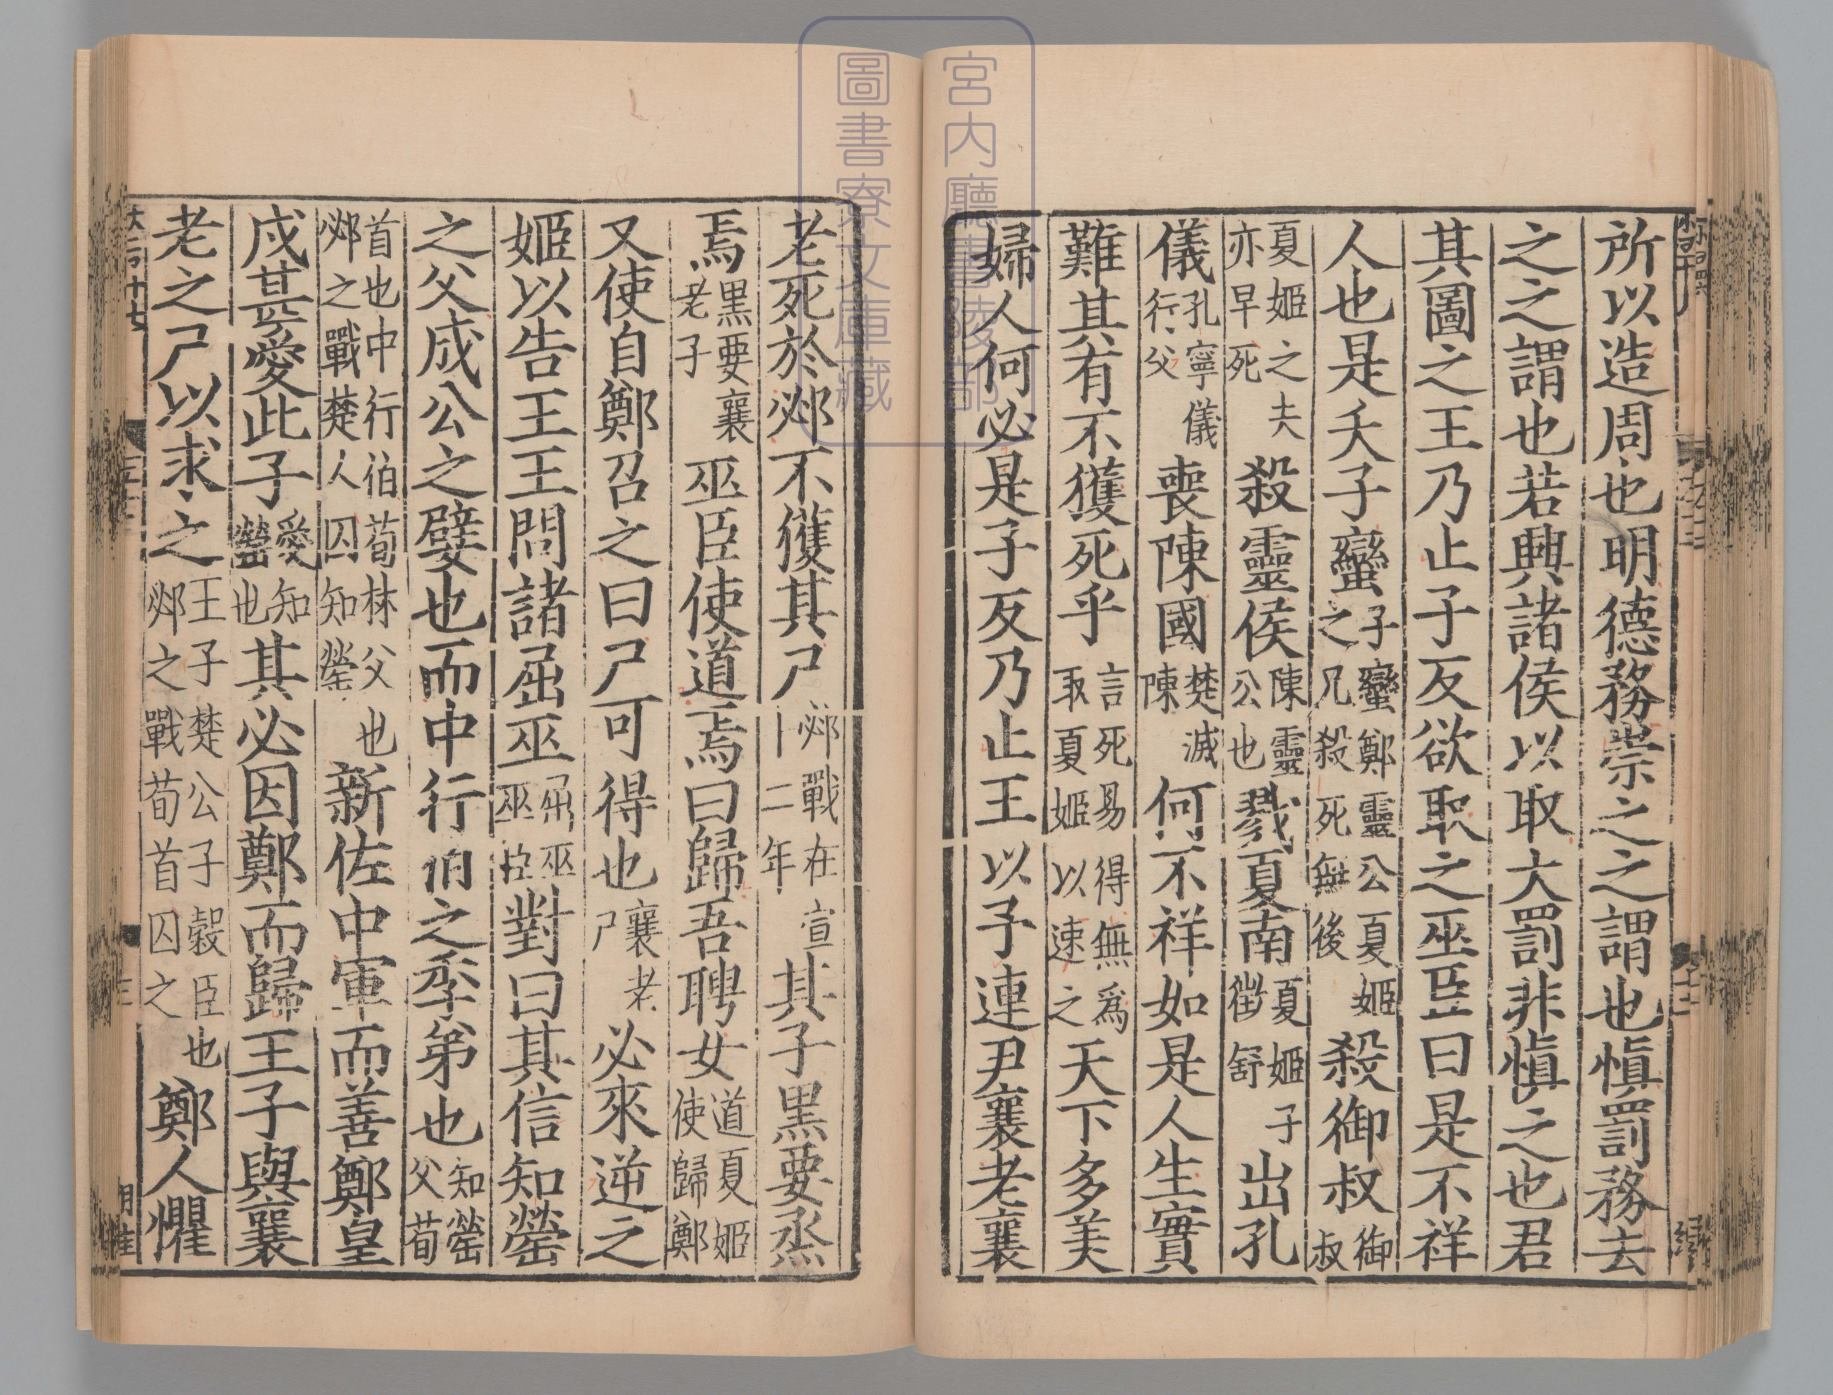 所以造周也明德務崇之之謂也愼罰務去
之之謂也若興諸侯以取大罰非愼之也君
其圖之王乃止子反欲取之巫臣曰是不祥
人也是夭子蠻子蠻鄭靈公夏姬之兄殺死無後殺御叔御叔
夏姬之夫亦早死殺靈侯陳靈公也戮夏南夏姬子徵舒出孔
儀孔寧儀行父喪陳國楚滅陳何不祥如是人生實
難其有不獲死乎言死易得無爲取夏姬以速之天下多美
婦人何必是子反乃止王以子連尹襄老襄
老死於邲不獲其尸邲戰在宣十二年其子黑要烝
焉黑要襄老子巫臣使道焉曰歸吾聘女道夏姬使歸鄭
又使自鄭召之曰尸可得也襄老尸必來逆之
姬以告王王問諸屈巫屈巫巫臣對曰其信知罃
之父成公之嬖也而中行伯之季弟也知罃父荀
首也中行伯荀林父也邲之戰楚人囚知罃新佐中軍而善鄭皇
戌甚愛此子愛知罃也其必因鄭而歸王子與襄
老之尸以求之王子楚公子穀臣也邲之戰荀首囚之鄭人懼
宮内廳書陵部
圖書寮文庫藏